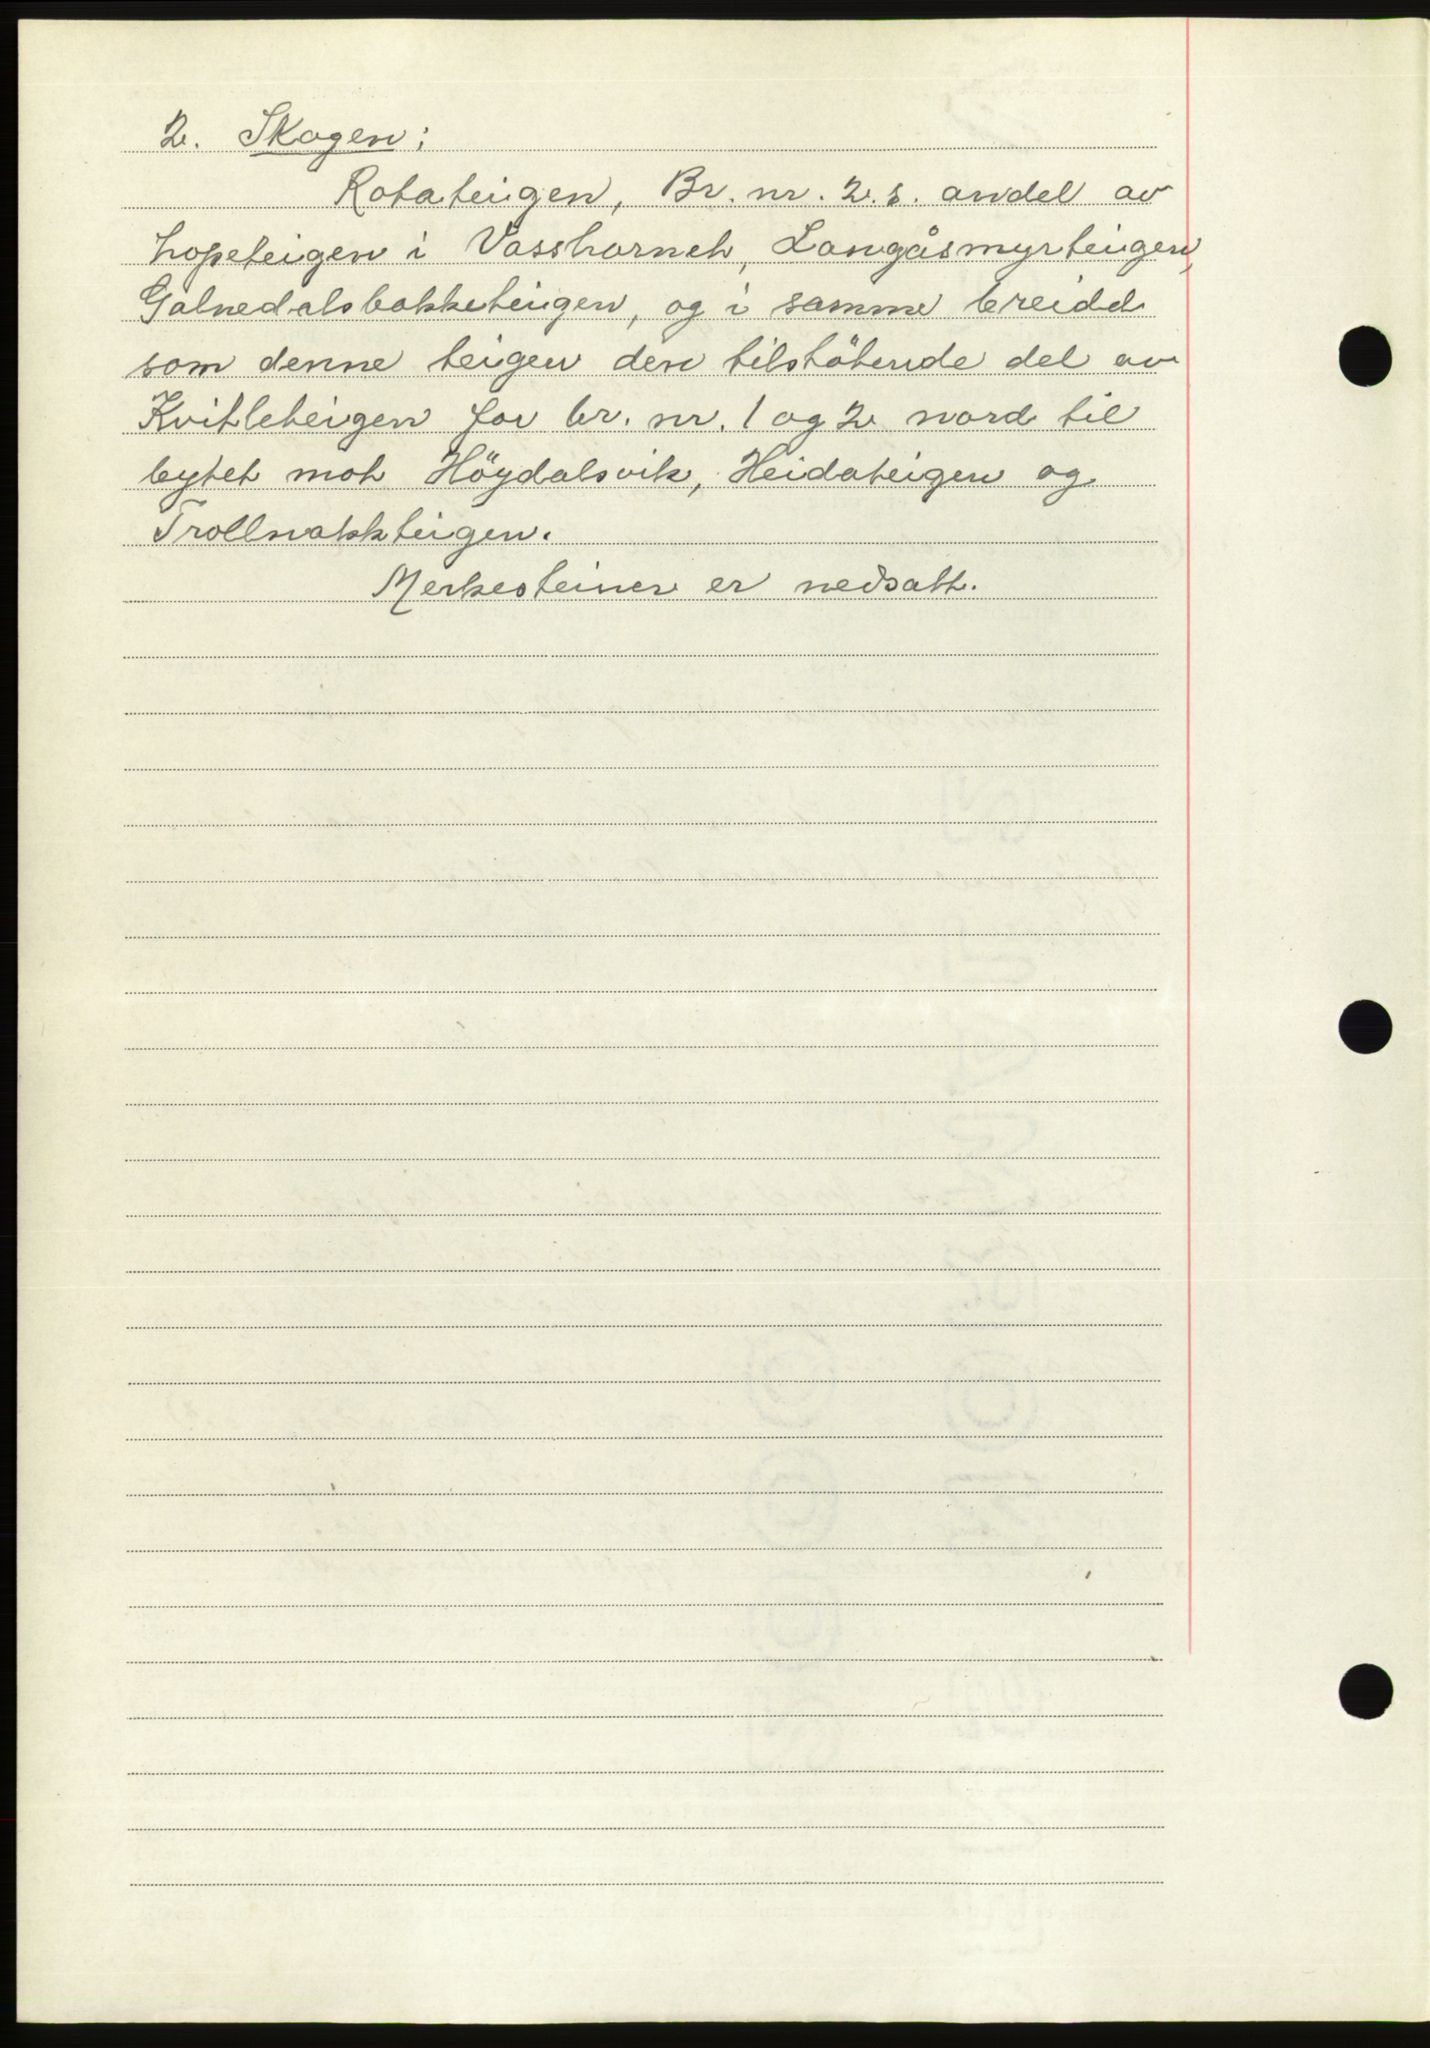 2. Skogen:
Rotateigen, Br. nr. 2.s. andel av
Lopeteigen i Vasshornet, Langåsmyrteigen,
Galnedalsbakketeigen, og i samme breidd
som denne teigen den tilstötende del av
Kvitleteigen for br. nr. 1 og 2 nord til
bytet mot Höydalsvik, Heidateigen og
Trollnakkteigen.
Merkesteiner er nedsatt.